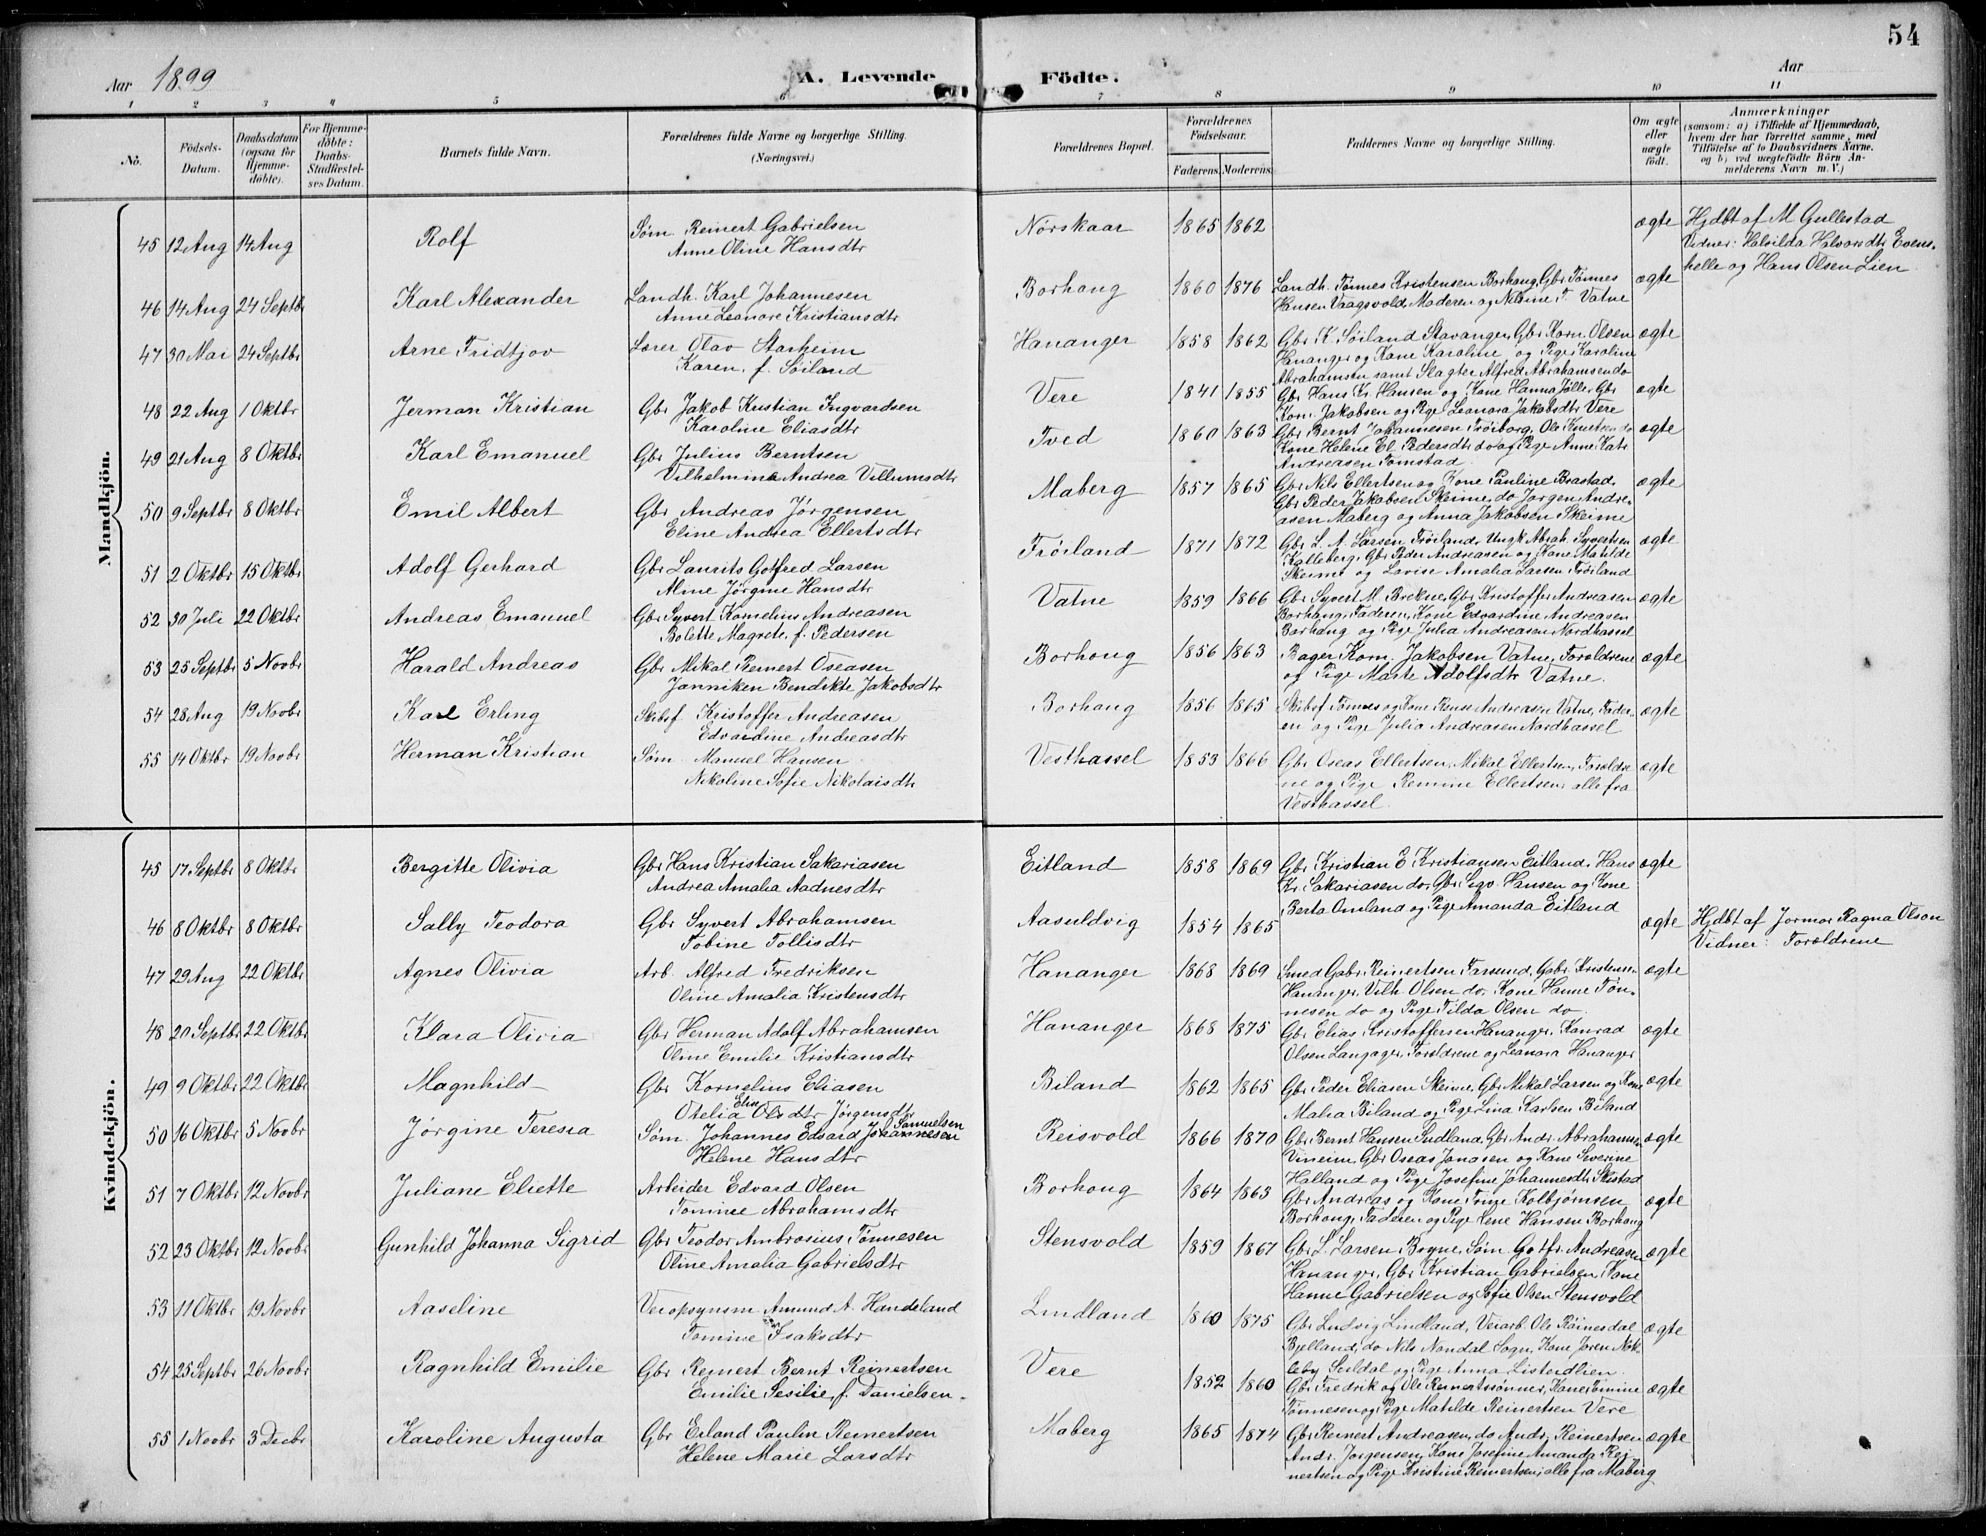 54
Aar 1899
A. Levende
Födte.
Aar
1 2 3 4 5 6 7 8 9 10 11
No.
Födsels-Datum.
Daabsdatum (ogsaa for Hjemme-döbte).
For Hjemme-döbte: Daabs-Stadfæstel-ses Datum.
Barnets fulde Navn.
Forældrenes fulde Navne og borgerlige Stilling.
(Næringsvei.)
Forældrenes Bopæl.
Forældrenes Födselsaar.
Faderens. Moderens.
Faddernes Navne og borgerlige Stilling.
Om ægte eller uægte födt.
Anmærkninger
(saasom: a) i Tilfælde af Hjemmedaab,
hvem der har forrettet samme, med
Tilföielse af to Daabsvidners Navne.
og b) ved uægtefödte Börn An-
melderens Navn m. V.)
Mandkjön.
45 12 Aug 14 Aug Rolf Søm. Reinert Gabrielsen Nørskaar 1865 1862 ægte Hjdbt af M Gullestad
Anne Oline Hansdtr Vidner: Halvilda Halvorsdtr Evens-
helle og Hans Olsen Lien
46 14 Aug 24 Septbr Karl Alexander Landh. Karl Johannesen Borhaug 1860 1876 Landh. Tønnes Kristensen Borhaug, Gbr Tønnes ægte
Anne Leonore Kristiansdtr Hansen Vaagsvold, Moderen og Nelsine T. Vatne
47 30 Mai 24 Septbr Arne Fridtjov Lærer Olav Starheim Hananger 1858 1862 Gbr K. Søiland Stavanger, Gbr Korn. Olsen ægte
Karen, f. Søiland Hananger og Kone Karoline og Pige Karoline
Abrahamsen samt Slagter Alfred Abrahamsen do
48 22 Aug 1 Oktbr Jerman Kristian Gbr Jakob Kristian Ingvardsen Vere 1841 1855 Gbr Hans Kr. Hansen og Kone Hanna Jølle, Gbr ægte
Karoline Eliasdtr Korn. Jakobsen og Pige Leonora Jakobsdtr Vere
49 21 Aug 8 Oktbr Karl Emanuel Gbr Julius Berntsen Tved 1860 1863 Gbr Bernt Johannesen Frøiborg, Ole Knutsen do ægte
Vilhelmina Andrea Villumsdtr Kone Helene El. Pedersdtr do og Pige Anne Kat.
Andreasen Tomstad
50 9 Septbr 8 Oktbr Emil Albert Gbr Andreas Jørgensen Maberg 1857 1865 Gbr Nils Ellertsen og Kone Pauline Brastad, ægte
Eline Andrea Ellertsdtr Gbr Peder Jakobsen Skeime, do Jørgen Andre-
asen Maberg og Anna Jakobsen Skeime
51 2 Oktbr 15 Oktbr Adolf Gerhard Gbr Laurits Gotfred Larsen Frøiland 1871 1872 Gbr L. A. Larsen Frøiland, Ungk Abrah. Syvertsen ægte
Aline Jørgine Hansdtr Kalleberg, Gbr Peder Andreasen og Kone Matilde
Skeime og Lovise Amalia Larsen Frøiland
52 30 Juli 22 Oktbr Andreas Emanuel Gbr Syvert Kornelius Andreasen Vatne 1859 1866 Gbr Syvert M. Brekne, Gbr Kristoffer Andreasen ægte
Bolette Magrete, f. Pedersen Borhaug, Faderen, Kone Edvardine Andreasen
Borhaug og Pige Julia Andreasen Nordhassel
53 25 Septbr 5 Novbr Harald Andreas Gbr Mikal Reinert Oseasen Borhaug 1856 1863 Bager Korn. Jakobsen Vatne, Forældrene ægte
Janniken Bendikte Jakobsdtr og Pige Marte Adolfsdtr Vatne.
54 28 Aug 19 Novbr Karl Erling Skibsf Kristoffer Andreasen Borhaug 1856 1865 Skibsf Tønnes og Kone Rense Andreasen Vatne, Fader- ægte
Edvardine Andreasdtr en og Pige Julia Andreasen Nordhassel
55 14 Oktbr 19 Novbr Herman Kristian Søm. Manuel Hansen Vesthassel 1853 1866 Gbr Oseas Ellertsen, Mikal Ellertsen, Forældre- ægte
Nikoline Sofie Nikolaisdtr ne og Pige Remine Ellertsen, alle fra
Vesthassel.
Kvindekjön.
45 17 Septbr 8 Oktbr Bergitte Olivia Gbr Hans Kristian Sakariasen Eitland 1858 1869 Gbr Kristian E. Kristiansen Eitland, Hans ægte
Andrea Amalia Aadnesdtr Kr. Sakariasen do, Gbr Sigv. Hansen og Kone
Berta Omland og Pige Amanda Eitland
46 8 Oktbr 8 Oktbr Sally Teodora Gbr Syvert Abrahamsen Aasuldvig 1854 1865 ægte Hjdbt af Jormor Ragna Olson
Tobine Tollisdtr Vidner: Forældrene
47 29 Aug 22 Oktbr Agnes Olivia Arb. Alfred Fredriksen Hananger 1868 1869 Smed Gabr. Reinertsen Farsund, Gabr. Kristensen ægte
Oline Amalia Kristensdtr Hananger, Vilh. Olsen do, Kone Hanne Tøn-
nesen do og Pige Tilda Olsen do.
48 20 Septbr 22 Oktbr Klara Olivia Gbr Herman Adolf Abrahamsen Hananger 1868 1875 Gbr Elias Kristoffersen Hananger, Konrad ægte
Oline Emilie Kristiansdtr Olsen Langager, Forældrene og Leanora Hananger
49 9 Oktbr 22 Oktbr Magnhild Gbr Kornelius Eliasen Biland 1862 1865 Gbr Peder Eliasen Skeime, Gbr Mikal Larsen og Kone ægte
Otelia Elise Olsdtr Jørgensdtr Malia Biland og Pige Lina Karlsen Biland
50 16 Oktbr 5 Novbr Jørgine Teresia Søm. Johannes Edvard Johannesen Samuelsen Reisvold 1866 1870 Gbr Bernt Hansen Sudland, Gbr Andr. Abrahamsen ægte
Helene Hansdtr Vineim, Gbr Oseas Jonasen og Kone Severine
Halland og Pige Josefine Johannesdtr Skistad
51 7 Oktbr 12 Novbr Juliane Eliette Arbeider Edvard Olsen Borhaug 1864 1863 Gbr Andreas og Kone Tonje Kolbjørnsen ægte
Tomine Abrahamsdtr Borhaug, Faderen og Pige Lene Hansen Borhaug
52 23 Oktbr 12 Novbr Gunhild Johanna Sigrid Gbr Teodor Ambrosius Tønnesen Stensvold 1859 1867 Gbr L. Larsen Bryne, Søm. Gotfr. Andreasen ægte
Oline Amalia Gabrielsdtr Hananger, Gbr Kristian Gabrielsen, Kone
Hanne Gabrielsen og Sofie Olsen Stensvold
53 11 Oktbr 19 Novbr Aaseline Veiopsynsm. Amund A. Handeland Lindland 1860 1875 Gbr Ludvig Lindland, Veiarb. Ole Røinesdal ægte
Tomine Isaksdtr Bjelland, do Nils Nondal Sogn, Kone Joren Nok-
leby Suldal og Pige Anna Listendlien
54 25 Septbr 26 Novbr Ragnhild Emilie Gbr Reinert Bernt Reinertsen Vere 1852 1860 Gbr Fredrik og Ole Reinertssønner, Kone Tomine ægte
Emilie Sesilie, f. Danielsen. Tønnesen og Pige Matilde Reinertsen Vere
55 1 Novbr 3 Decbr Karoline Augusta Gbr Erland Paulin Reinertsen Maberg 1865 1874 Gbr Reinert Andreasen, do Andr. Reinertsen ægte
Helene Marie Larsdtr Andr. Jørgensen, Kone Josefine Amanda Rei-
nertsen og Pige Kristine Reinertsen, alle fra Maberg